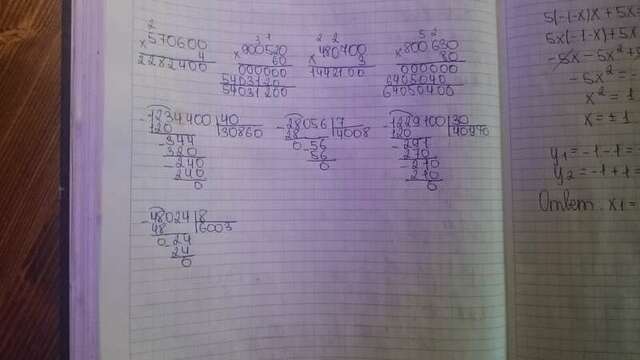 2
×570600
4
2282400
3 1
×900520
60
000000
5403120
54031200
2 2
×480700
3
1442100
5 2
×800630
80
000000
6405040
64050400
-1234400|40
120 |30860
-344
320
-240
240
0
-28056|7
28 |4008
0-56
56
0
-1229100|30
120 |40970
-291
270
-210
210
0
-48024|8
48 |6003
0-24
24
0
5(-1-x)x+5x
5x(-1-x)+5x
-5x-5x²+
-5x²=
x²=1
x=±1
y₁=-1-1=
y₂=-1+1=
Ответ: x₁=